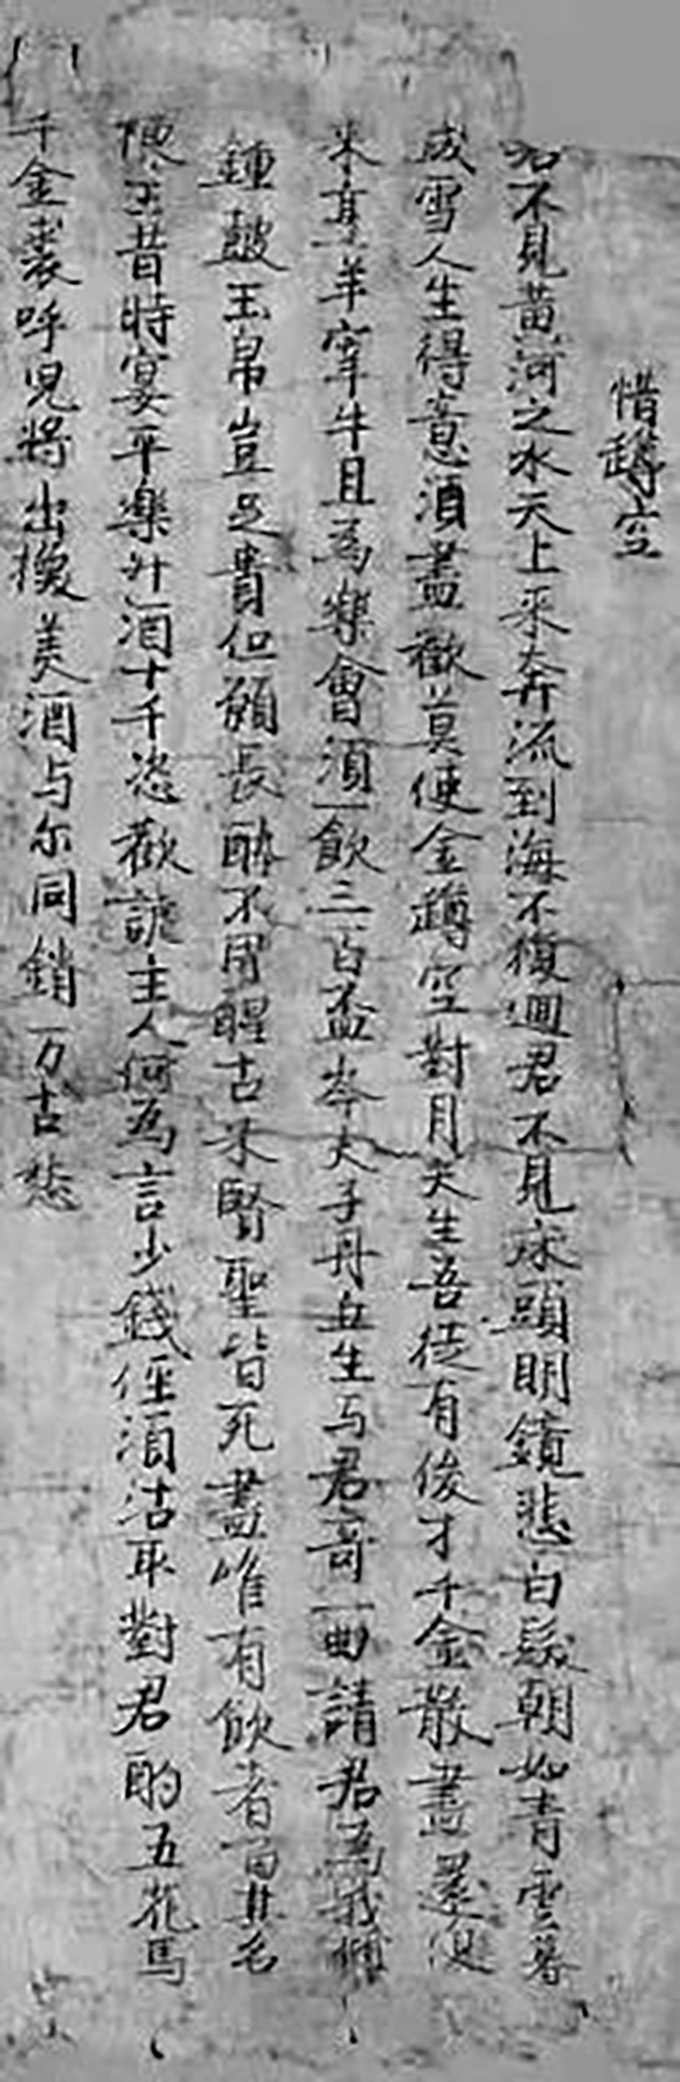 惜罇空
君不見黃河之水天上來奔流到海不復迴君不見床頭明鏡悲白髮朝如青雲暮
成雪人生得意須盡歡莫使金罇空對月天生吾徒有俊才千金散盡還復
來烹羊宰牛且為樂會須一飲三百盃岑夫子丹丘生与君哥一曲請君為我傾
鍾皷玉帛豈足貴但願長醉不用醒古來賢聖皆死盡唯有飲者留其名
陳王昔時宴平樂㪷酒十千恣歡謔主人何為言少錢徑須沽取對君酌五花馬
千金裘呼兒將出換美酒与尔同銷万古愁